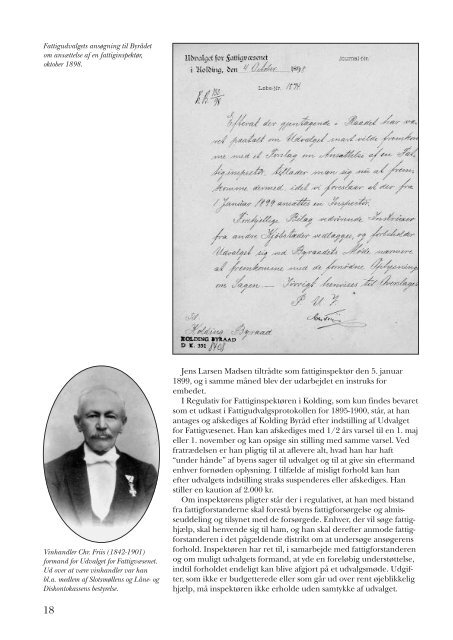 Fattigudvalgets ansøgning til Byrådet
om ansættelse af en fattiginspektør,
oktober 1898.
Udvalget for Fattigvæsenet
i Kolding, den 4 October 1898
Journal-
Løbe-Nr. 1574
Efterat der gjentagende i Raadet har va-
ret paatalt om Udvalget snart vilde fremkom-
me med et Forslag om Ansættelse af en Fat-
tiginspektør, tillader man sig nu at frem-
komme dermed, idet vi foreslaar at der fra
1 Januar 1899 ansættes en Inspektør.
Bilag vedrørende Instruxer
fra andre Kjøbstæder vedlægges, og forbeholder
Udvalget sig ved Byraadets Møde nærmere
at fremkomme med de fornødne Oplysninger
om Sagen. Forøvrigt henvises til
P. U. V.
Chr. Friis
Til
Kolding Byraad
KOLDING BYRAAD
D K. 351
Jens Larsen Madsen tiltrådte som fattiginspektør den 5. januar
1899, og i samme måned blev der udarbejdet en instruks for
embedet.
I Regulativ for Fattiginspektøren i Kolding, som kun findes bevaret
som et udkast i Fattigudvalgsprotokollen for 1895-1900, står, at han
antages og afskediges af Kolding Byråd efter indstilling af Udvalget
for Fattigvæsenet. Han kan afskediges med 1/2 års varsel til en 1. maj
eller 1. november og kan opsige sin stilling med samme varsel. Ved
fratrædelsen er han pligtig til at aflevere alt, hvad han har haft
“under hånde” af byens sager til udvalget og til at give sin eftermand
enhver fornøden oplysning. I tilfælde af misligt forhold kan han
efter udvalgets indstilling straks suspenderes eller afskediges. Han
stiller en kaution af 2.000 kr.
Om inspektørens pligter står der i regulativet, at han med bistand
fra fattigforstanderne skal forestå byens fattigforsørgelse og almis-
seuddeling og tilsynet med de forsørgede. Enhver, der vil søge fattig-
hjælp, skal henvende sig til ham, og han skal derefter anmode fattig-
forstanderen i det pågældende distrikt om at undersøge ansøgerens
forhold. Inspektøren har ret til, i samarbejde med fattigforstanderen
og om muligt udvalgets formand, at yde en foreløbig understøttelse,
indtil forholdet endeligt kan blive afgjort på et udvalgsmøde. Udgif-
ter, som ikke er budgetterede eller som går ud over rent øjeblikkelig
hjælp, må inspektøren ikke erholde uden samtykke af udvalget.
Vinhandler Chr. Friis (1842-1901)
formand for Udvalget for Fattigvæsenet.
Ud over at være vinhandler var han
bl.a. medlem af Slotsmøllens og Låne- og
Diskontokassens bestyrelse.
18